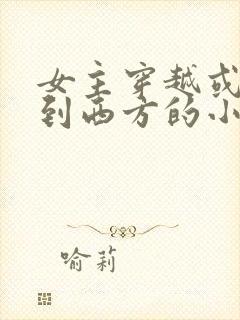 女主穿越或
到西方的小
喻莉